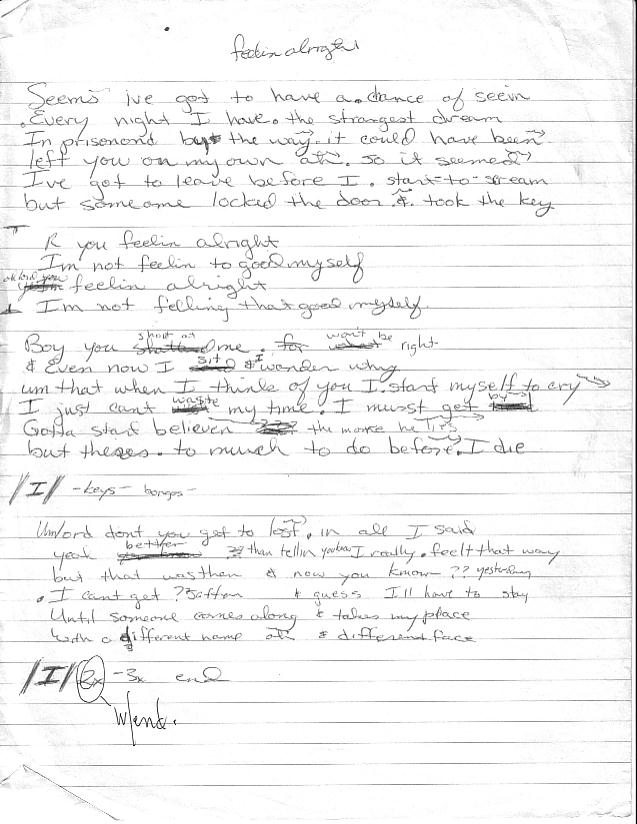 feelin alright
Seems ive got to have a. chance of seein
.Every night I have. the strangest dream
In prisonond by the way. it could have been
left you on my own ah. so it seemed
I've got to leave before I. start-to-scream
but someome locked the door. & took the key
R you feelin alright
Im not feelin to good myself
feelin alright
Im not felling that good myself.
Boy you shont at me. for won't be right
& Even now I sit & I wonder why
um that when I think of you I. start myself to cry
I just cant waste my time. I musst get by
Gotta stard believen the more he lies
but theres. to much to do before. I die
/I/ -keys- bongos-
Um/ord dont you get to lost. in all I said
yeah better than tellin you I really. feelt that way
but that was then & now you know ?? yesterday
. I cant get ? & guess I'll have to stay
Until someone comes along & takes my place
With a different name oh & different face
/I/ 2x -3x end
W/end.